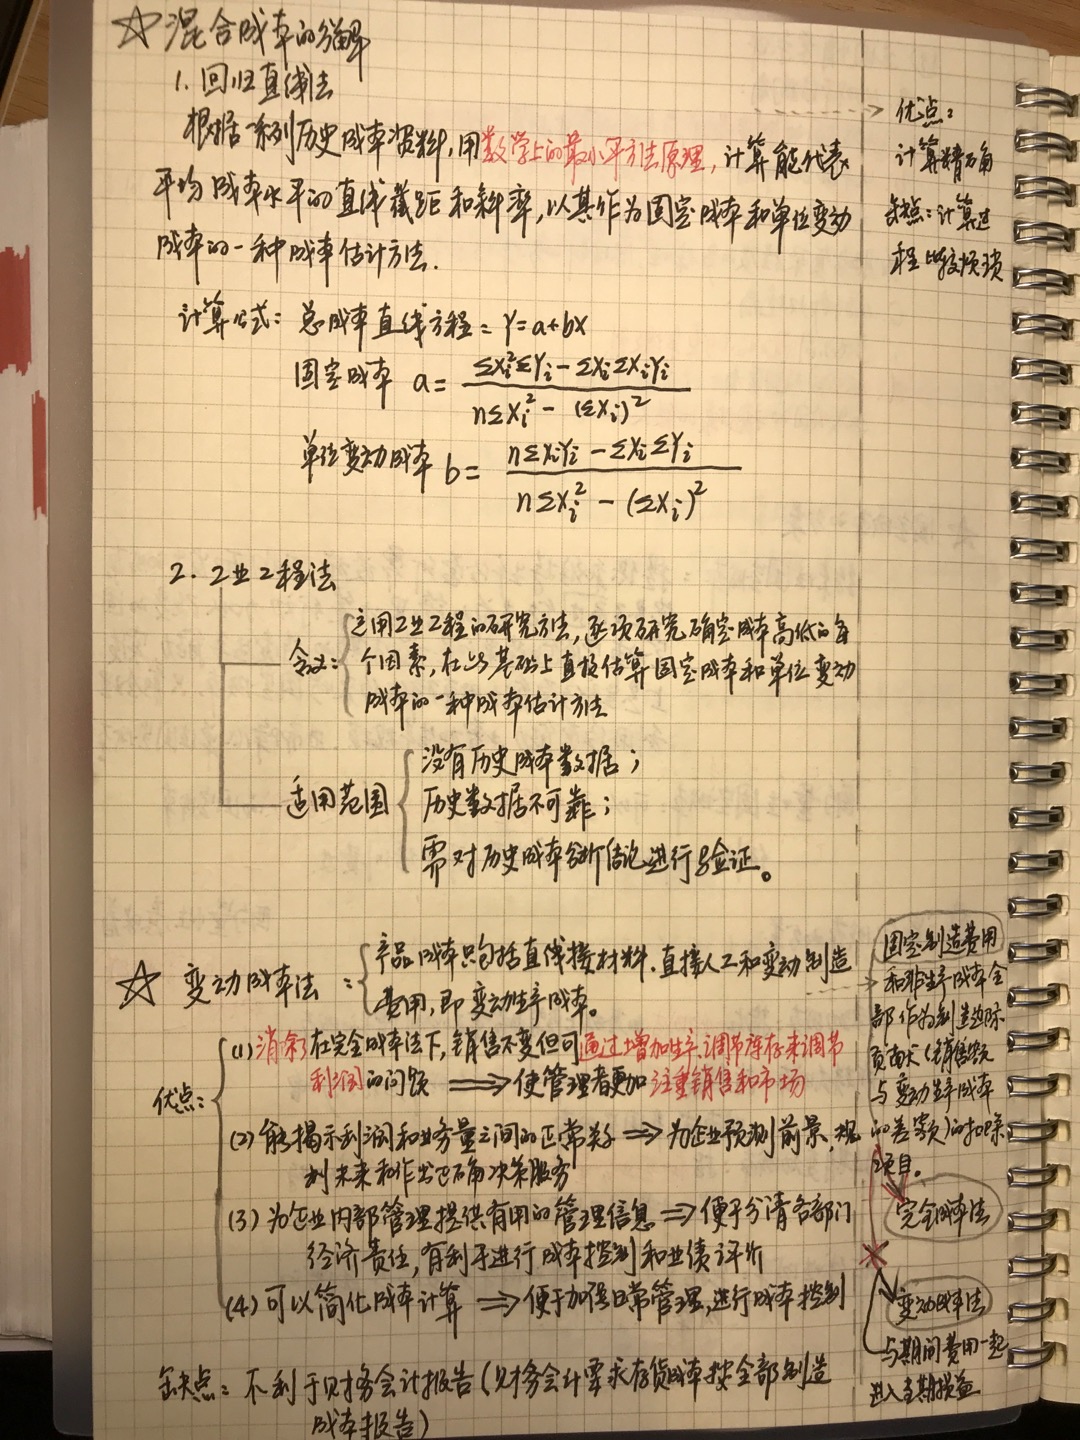 ☆混合成本的分解
1. 回归直线法
根据一系列历史成本资料,用数学上的最小平方法原理,计算能代表
平均成本水平的直线截距和斜率,以其作为固定成本和单位变动
成本的一种成本估计方法.
计算公式: 总成本直线方程 = Y=a+bX
固定成本 a= (ΣXi²ΣYi-ΣXiΣXiYi)/(nΣXi²-(ΣXi)²)
单位变动成本 b= (nΣXiYi-ΣXiΣYi)/(nΣXi²-(ΣXi)²)
优点:
计算精确
缺点:计算过
程比较烦琐
2. 工业工程法
含义: 运用工业工程的研究方法,逐项研究确定成本高低的每
个因素,在此基础上直接估算固定成本和单位变动
成本的一种成本估计方法
适用范围
没有历史成本数据;
历史数据不可靠;
需对历史成本分析结论进行验证。
☆ 变动成本法: 产品成本只包括直接材料.直接人工和变动制造
费用,即变动生产成本。
优点:
(1)消除在完全成本法下,销售不变但可通过增加生产、调节库存来调节
利润的问题 ⇒ 使管理者更加注重销售和市场
(2) 能揭示利润和业务量之间的正常关系 ⇒ 为企业预测前景、规
划未来和作出正确决策服务
(3) 为企业内部管理提供有用的管理信息 ⇒ 便于分清各部门
经济责任,有利于进行成本控制和业绩评价
(4)可以简化成本计算 ⇒ 便于加强日常管理,进行成本控制
缺点: 不利于财务会计报告(财务会计要求存货成本按全部制造
成本报告)
固定制造费用
和非生产成本全
部作为制造边际
贡献(销售额
与变动生产成本
的差额)的扣除
项目。
完全成本法
变动成本法
与期间费用一起
进入当期损益